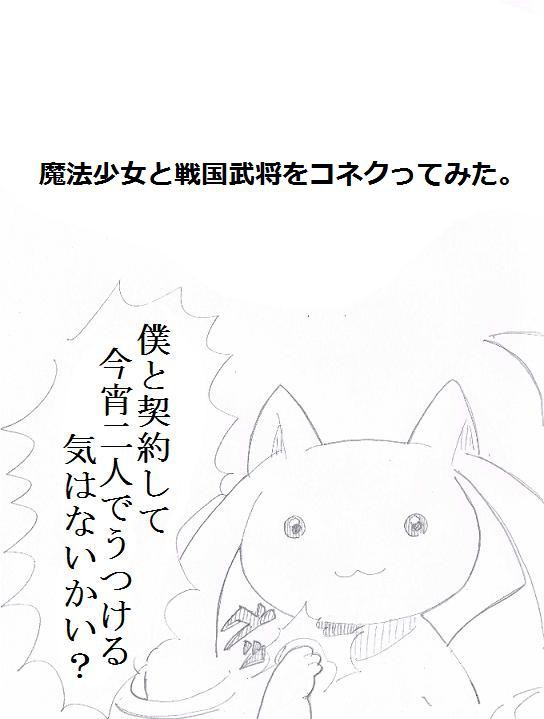 魔法少女と戦国武将をコネクってみた。
僕と契約して
今宵二人でうつける
気はないかい？
グッ